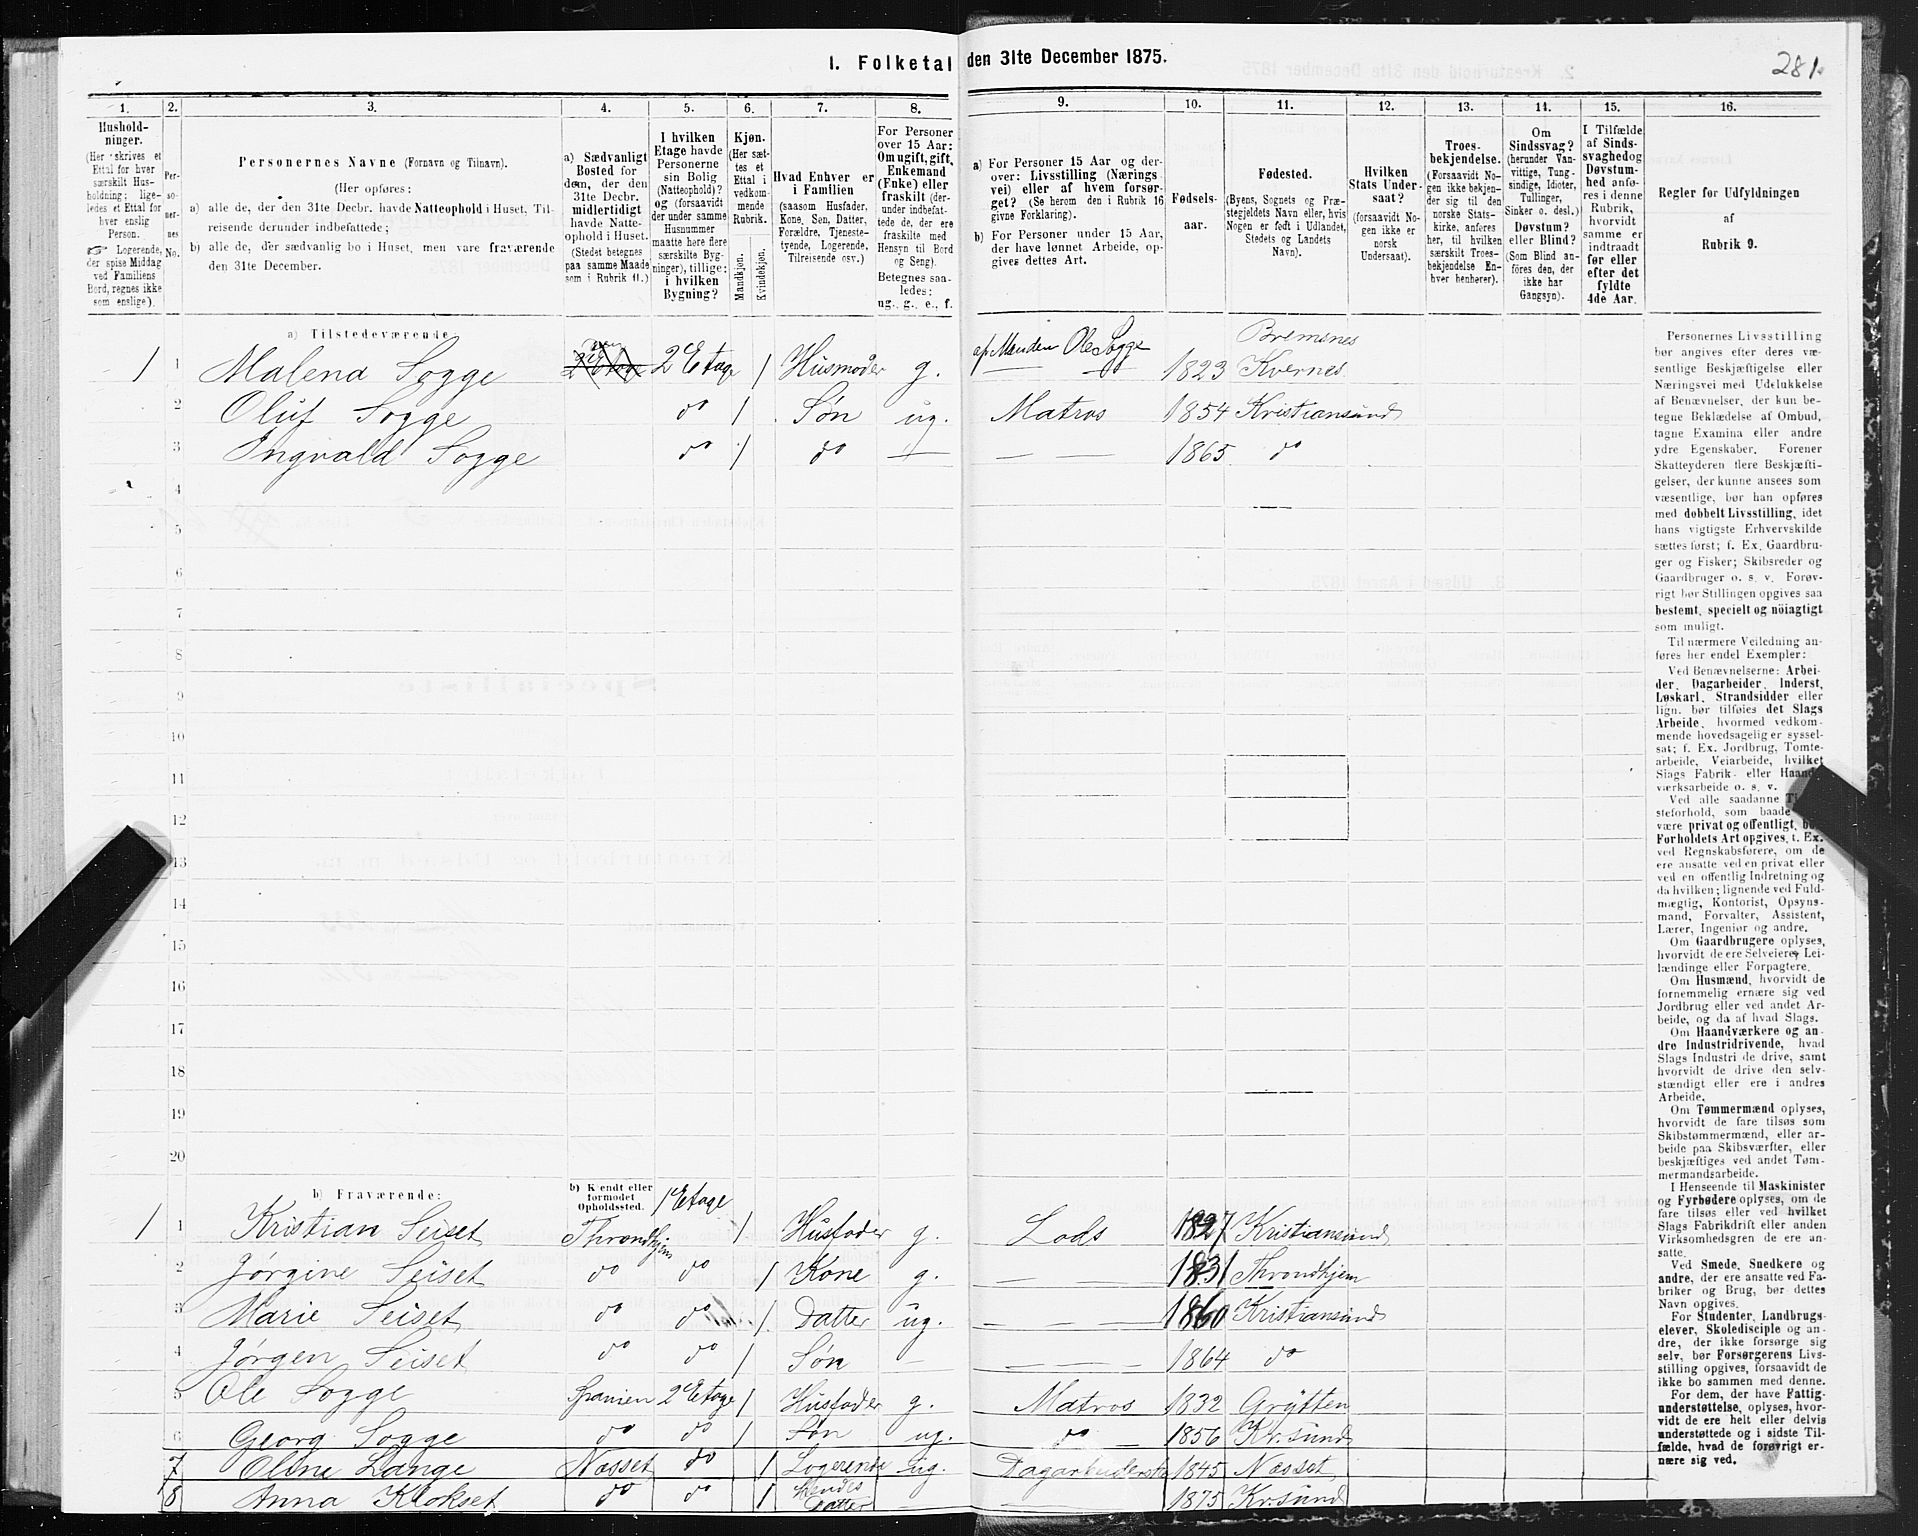 I. Folketal den 31te December 1875.
281.
1. 2. 3. 4. 5. 6. 7. 8. 9. 10. 11. 12. 13. 14. 15. 16.
Hushold-
ninger.
(Her skrives et
Ettal for hver
særskilt Hus-
holdning; lige-
ledes et Ettal for
hver enslig
Person.
☞ Logerende,
der spise Middag
ved Familiens
Bord, regnes ikke
som enslige).
Per-
so-
ner-
nes
No.
Personernes Navne (Fornavn og Tilnavn).
(Her opføres:
a) alle de, der den 31te Decbr. havde Natteophold i Huset, Til-
reisende derunder indbefattede;
b) alle de, der sædvanlig bo i Huset, men vare fraværende
den 31te December.
a) Sædvanligt
Bosted for
dem, der den
31te Decbr.
midlertidigt
havde Natte-
ophold i Huset.
(Stedet betegnes
paa samme Maade
som i Rubrik 11.)
I hvilken
Etage havde
Personerne
sin Bolig
(Natteophold)?
og (forsaavidt
der under samme
Husnummer
maatte høre flere
særskilte Byg-
ninger), tillige:
i hvilken
Bygning?
Kjøn.
(Her sæt-
tes et
Ettal i
vedkom-
mende
Rubrik.
Mandkjøn.
Kvindekjøn.
Hvad Enhver er
i Familien
(saasom Husfader,
Kone, Søn, Datter,
Forældre, Tjeneste-
tyende, Logerende,
Tilreisende osv.)
For Personer
over 15 Aar:
Om ugift, gift,
Enkemand
(Enke) eller
fraskilt (der-
under indbefat-
tede de, der ere
fraskilte med
Hensyn til Bord
og Seng).
Betegnes saa-
ledes:
ug., g., e., f.
a) For Personer 15 Aar og der-
over: Livsstilling (Nærings
vei) eller af hvem forsør-
get? (Se herom den i Rubrik 16
givne Forklaring).
b) For Personer under 15 Aar,
der have lønnet Arbeide, op-
gives dettes Art.
Fødsels-
aar.
Fødested.
(Byens, Sognets og Præ-
stegjeldets Navn eller, hvis
Nogen er født i Udlandet,
Stedets og Landets
Navn).
Hvilken
Stats Under-
saat?
(forsaavidt No-
gen ikke er
norsk
Undersaat).
Troes-
bekjendelse.
(Forsaavidt No-
gen ikke bekjen-
der sig til den
norske Stats-
kirke, anføres
her, til hvilken
særskilt Troes-
bekjendelse En-
hver henhører).
Om
Sindssvag?
(herunder Van-
vittige, Tung-
sindige, Idioter,
Tullinger,
Sinker o. desl.)
Døvstum?
eller Blind?
(Som Blind an-
føres den, der
ikke har
Gangsyn).
I Tilfælde
af Sinds-
svaghed og
Døvstum-
hed anfø-
res i denne
Rubrik,
hvorvidt
samme er
indtraadt
før eller
efter det
fyldte
4de Aar.
Regler for Udfyldningen
af
Rubrik 9.
a) Tilstedeværende:
1 1 Malena Sogge 2 Etage 1 Husmoder g. af Manden Ole Sogge 1823 Bremsnes Kvernes.
2 Oluf Sogge do 1 Søn ug. Matros 1854 Kristiansund
3 Ingvald Sogge do 1 do — — — 1865 do
4
5
6
7
8
9
10
11
12
13
14
15
16
17
18
19
20
b) Fraværende:
b) Kjendt eller
formodet
Opholdssted.
1 1 Kristian Seiset Throndhjem 1 Etage 1 Husfader g. Lods 1827 Kristiansund
2 Jørgine Seiset do do 1 Kone g. — 1831 Throndhjem
3 Marie Seiset do do 1 Datter ug. — — — 1860 Kristiansund
4 Jørgen Seiset do do 1 Søn — — — — 1864 do
5 Ole Sogge Spanien 2 Etage 1 Husfader g. Matros 1832 Grytten
6 Georg Sogge do do 1 Søn ug. do — 1856 Kr.sund
7 Oline Lange Næsset do 1 Logerende ug. 1845 Næsset
8 Anna Klokset do do 1 Hendes Datter — — 1875 Kr.sund
Personernes Livsstilling
bør angives efter deres væ-
sentlige Beskjæftigelse eller
Næringsvei med Udelukkelse
af Benævnelser, der kun be-
tegne Beklædelse af Ombud,
tagne Examina eller andre
ydre Egenskaber. Forener
Skatteyderen flere Beskjæfti-
gelser, der kunne ansees som
væsentlige, bør han opføres
med dobbelt Livsstilling, idet
hans vigtigste Erhvervskilde
sættes først; f. Ex. Gaardbru-
ger og Fisker; Skibsreder og
Gaardbruger o. s. v. Forøv-
rigt bør Stillingen opgives saa
bestemt, specielt og nöiagtigt
som muligt.
Til nærmere Veiledning an-
føres her endel Exempler:
Ved Benævnelserne: Arbei-
der, Dagarbeider, Inderst,
Løskarl, Strandsidder eller
lign. bør tilføies det Slags
Arbeide, hvormed vedkom-
mende hovedsagelig er syssel-
sat; f. Ex. Jordbrug, Tomte-
arbeide, Veiarbeide, hvilket
Slags Fabrik- eller
værksarbeide o. s. v.
Ved alle saadanne
steforhold, som baade
være privat og offentlig,
Forholdets Art opgives, t. Ex.
ved Regnskabsførere, om de
ere ansatte ved en privat eller
ved en offentlig Indretning og
da hvilken; lignende ved Fuld-
mægtig, Kontorist, Opsyns-
mand, Forvalter, Assistent,
Lærer, Ingeniør og andre.
Om Gaardbrugere oplyses,
hvorvidt de ere Selveiere, Lei-
lændinge eller Forpagtere.
Om Husmænd, hvorvidt de
fornemmelig ernære sig ved
Jordbrug eller ved andet Ar-
beide, og da af hvad Slags.
Om Haandværkere og an-
dre Industridrivende, hvad
Slags Industri de drive, samt
hvorvidt de drive den selv-
stændigt eller ere i andres
Arbeide.
Om Tømmermænd oplyses,
hvorvidt de fare tilsøs som
Skibstømmermænd, eller ar-
beide paa Skibsværfter, eller
beskjæftiges ved andet Tøm-
mermandsarbeide.
I Henseende til Maskinister
og Fyrbødere oplyses, om de
fare tilsøs eller ved hvilket
Slags Fabrikdrift eller anden
Virksomhedsgren de ere an-
satte.
Ved Smede, Snedkere og
andre, der ere ansatte ved Fa-
briker og Brug, bør dettes
Navn opgives.
For Studenter, Landbrugs-
elever, Skoledisciple og an-
dre, der ikke forsørge sig
selv, bør Forsørgerens Livs-
stilling opgives, forsaavidt de
ikke bo sammen med denne.
For dem, der have Fattig-
understøttelse, oplyses, hvor-
vidt de ere helt eller delvis
understøttede og i sidste Til-
fælde, hvad de forøvrigt er-
nære sig ved.